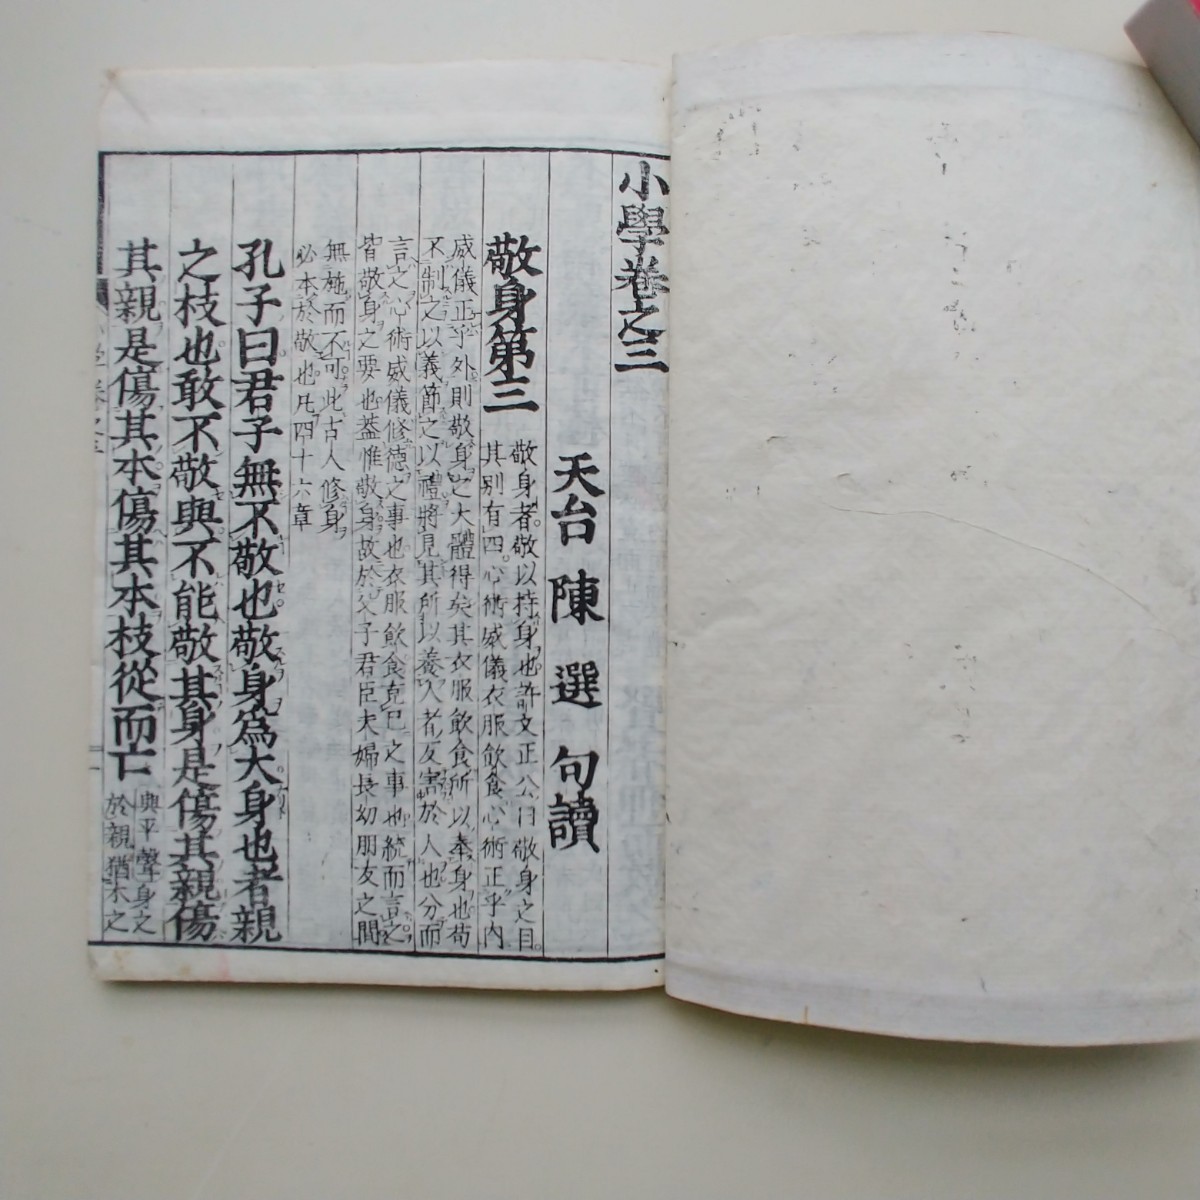 小學卷之三
天台 陳 選 句讀
敬身第三
敬身者敬以持身也許文正公曰敬身之目
其別有四心術威儀衣服飲食心術正乎內
威儀正乎外則敬身之大體得矣其衣服飲食所以奉身也苟
不制之以義節之以禮將見其所以養人者反害於人也分而
言之心術威儀修德之事也衣服飲食克己之事也統而言之
皆敬身之要也蓋惟敬身故於父子君臣夫婦長幼朋友之間
無施而不可此古人修身
必本於敬也凡四十六章
孔子曰君子無不敬也敬身爲大身也者親
之枝也敢不敬與不能敬其身是傷其親傷
其親是傷其本傷其本枝從而亡
與平聲身之
於親猶木之